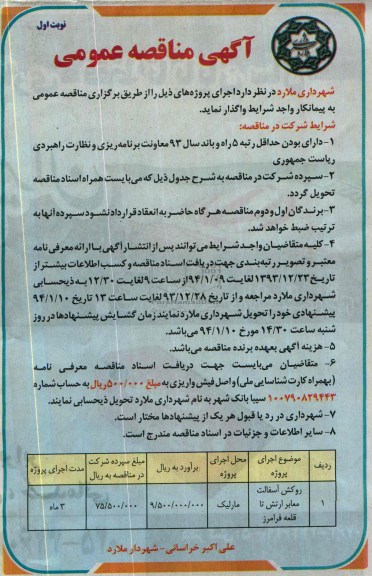 نوبت اول
آگهی مناقصه عمومی
شهرداری ملارد در نظر دارد اجرای پروژه‌های ذیل را از طریق برگزاری مناقصه عمومی
به پیمانکار واجد شرایط واگذار نماید.
شرایط شرکت در مناقصه:
۱- دارای بودن حداقل رتبه ۵ راه و باند سال ۹۳ معاونت برنامه ریزی و نظارت راهبردی
ریاست جمهوری
۲- سپرده شرکت در مناقصه به شرح جدول ذیل که می‌بایست همراه اسناد مناقصه
تحویل گردد.
۳- برندگان اول و دوم مناقصه هرگاه حاضر به انعقاد قرارداد نشود سپرده آنها به
ترتیب ضبط خواهد شد.
۴- کلیه متقاضیان واجد شرایط می‌توانند پس از انتشار آگهی با ارائه معرفی نامه
معتبر و تصویر رتبه‌بندی جهت دریافت اسناد مناقصه و کسب اطلاعات بیشتر از
تاریخ ۱۳۹۳/۱۲/۲۳ لغایت ۹۴/۱/۰۹ از ساعت ۹ لغایت ۱۲/۳۰ به ذیحسابی
شهرداری ملارد مراجعه و از تاریخ ۹۳/۱۲/۲۸ لغایت ساعت ۱۳ تاریخ ۹۴/۱/۱۰
پیشنهادی خود را تحویل شهرداری ملارد نمایند زمان گشایش پیشنهادها در روز
شنبه ساعت ۱۴/۳۰ مورخ ۹۴/۱/۱۰ می‌باشد.
۵- هزینه آگهی بعهده برنده مناقصه می‌باشد.
۶- متقاضیان می‌بایست جهت دریافت اسناد مناقصه معرفی نامه
(بهمراه کارت شناسایی ملی) و اصل فیش واریزی به مبلغ ۵۰۰/۰۰۰ ریال به حساب شماره
۱۰۰۷۹۰۸۲۹۴۴۳ سیبا بانک شهر به نام شهرداری ملارد تحویل ذیحسابی نمایند.
۷- شهرداری در رد یا قبول هر یک از پیشنهادها مختار است.
۸- سایر اطلاعات و جزئیات در اسناد مناقصه مندرج است.
ردیف موضوع اجرای پروژه محل اجرای پروژه برآورد به ریال مبلغ سپرده شرکت در مناقصه به ریال مدت اجرای پروژه
۱ روکش آسفالت معابر ارتش تا قلعه فرامرز مارلیک ۹/۵۰۰/۰۰۰/۰۰۰ ۷۵/۵۰۰/۰۰۰ ۳ ماه
علی اکبر خراسانی - شهردار ملارد